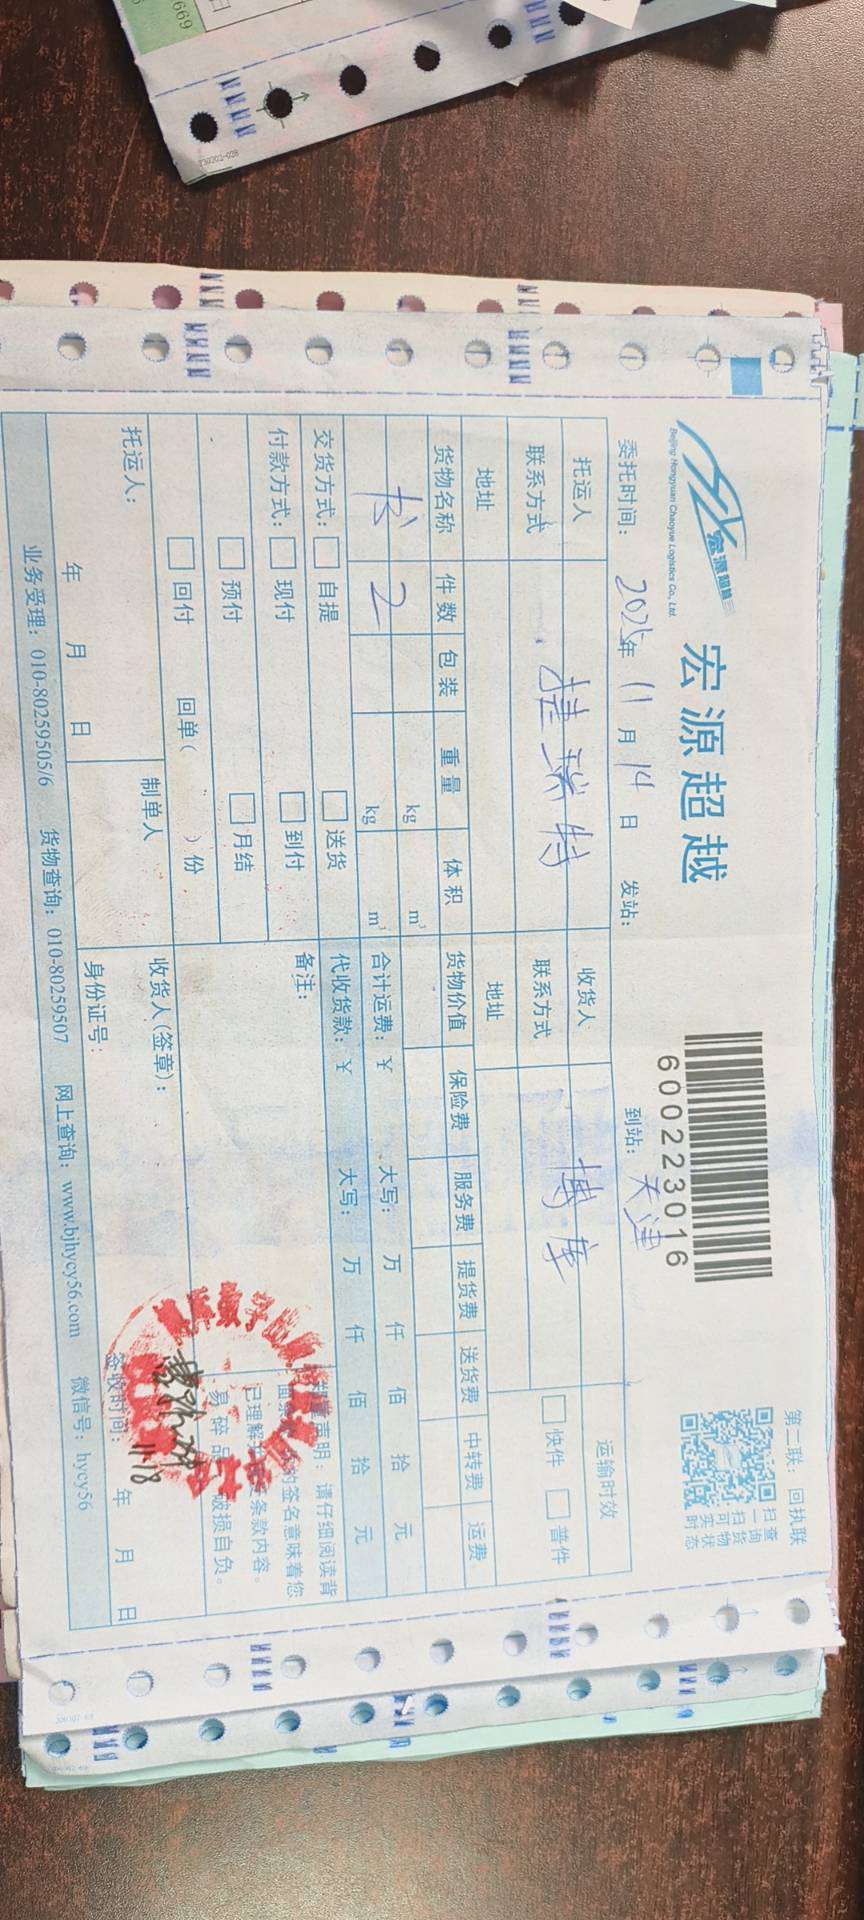 669
230202-028
第二联：回执联
宏源超越
Beijing Hongyuan Chaoyue Logistics Co., Ltd.
宏源超越
600223016
扫一扫可实时
查询货物状态
委托时间：2025年 11月 14日 发站： 到站：天津
托运人 捷瑞特 收货人 博库 运输时效
联系方式 联系方式 快件 普件
地址 地址
货物名称 件数 包装 重量 体积 货物价值 保险费 服务费 提货费 送货费 中转费 运费
书 2 kg m³
kg m³
合计运费：¥ 大写： 万 仟 佰 拾 元
代收货款：¥ 大写： 万 仟 佰 拾 元
交货方式： 自提 送货 备注：
付款方式： 现付 到付
预付 月结
回付 回单（ ）份
声明：请仔细阅读背
的签名意味着您
已理解 条款内容。
易碎品 破损自负。
托运人： 制单人 收货人(签章)：
身份证号：
11/8
年 月 日 签收时间： 年 月 日
业务受理：010-80259505/6 货物查询：010-80259507 网上查询：www.bjhycy56.com 微信号：hycy56